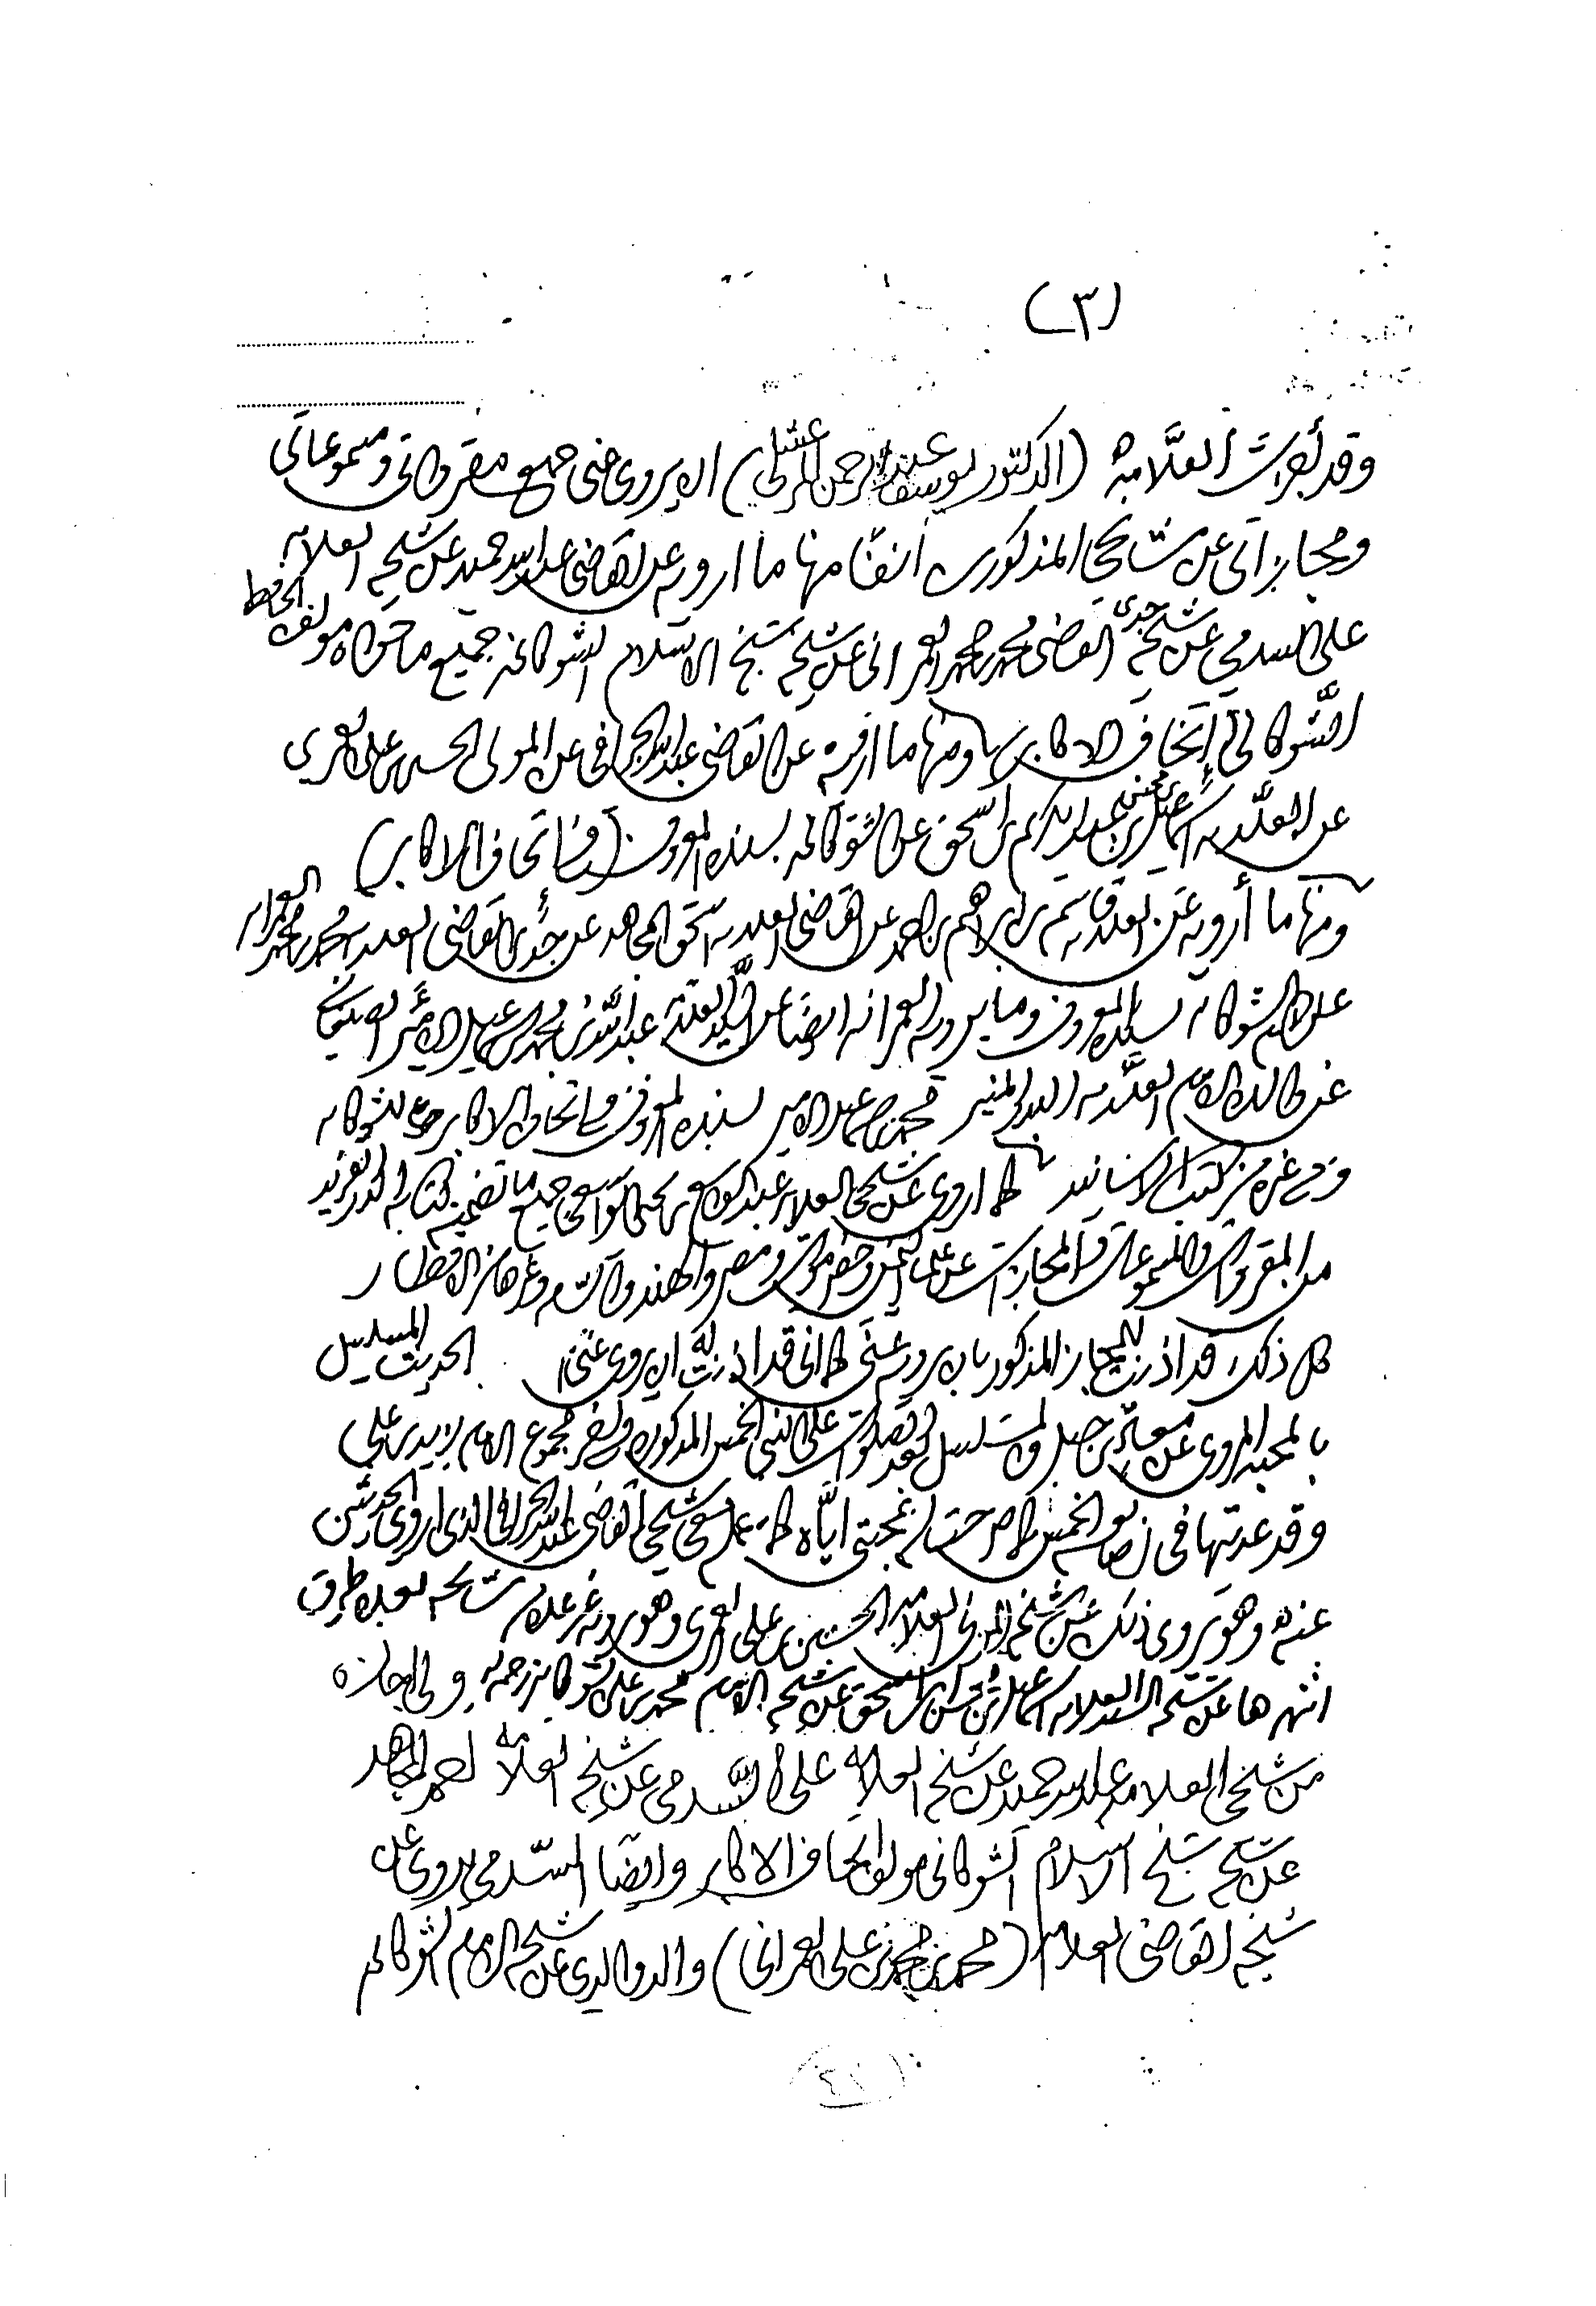 (٣)
وقد أجزت العلامة (الدكتور يوسف عبد الرحمن المرعشلي) ان يروي عني جميع مقروآتي ومسموعاتي
ومجازاتي عن مشائخي المذكورين آنفا منها ما ارويه عن القاضي عبدالله حميد عن شيخه العلامه
علي السدمي عن شيخه جدي القاضي محمد بن محمد العمراني عن شيخه شيخ الاسلام الشوكاني جميع ما حواه مؤلف الحافظ
الشوكاني إتحاف الاكابر ومنها ما ارويه عن القاضي عبدالله الجرافي عن المولى الحسين بن علي العمري
عن العلامه اسماعيل بن محسن بن عبدالكريم بن اسحق عن الشوكاني بسنده المعروف (في اتحاف الاكابر)
ومنها ما أرويه عن العلامه قاسم بن ابراهيم بن احمد عن القاضي العلامه اسحق المجاهد عن جدي القاضي العلامه محمد بن محمد العمراني
عن الشوكاني بسنده المعروف وما يرويه العمراني ايضا عن السيد العلامة عبدالله بن محمد بن اسماعيل الأمير الصنعاني
عن والده الامام العلامه البدر المنير محمد بن اسماعيل الامير بسنده المعروف في اتحاف الاكابر للشوكاني
وفي غيره من كتب الاسانيد كما اروي عن شيخي العلامه عبدالواسع بن يحيى الواسعي جميع ما تضمنه كتابه الدر الفريد
من المقروآت والمسموعات والمجازات عن علماء اليمن وحضرموت ومصر والهند والشام وغيرها من الاقطار
كل ذلك قد اذنت للمجاز المذكور بان يرويه عني كما اني قد اذنت له ان يروي عني الحديث المسلسل
بالمحبه المروي عن معاذ بن جبل والمسلسل بعد الصلوات على النبي الخمس المذكوره في مجموع الامام زيد بن علي
وقد عدتها في اصابعه الخمس بمحبتي اياه كما عمل معي شيخي القاضي عبدالله الجرافي الذي اروي الحديثين
عنه وهو يروي ذلك عن شيخه المولى العلامه الحسين بن علي العمري وهو يرويه عن مشائخه بعدة طرق
اشهرها عن شيخه السيد العلامه اسماعيل بن محسن بن اسحق عن شيخه الامام محمد بن علي الشوكاني رحمه الله ولي اجازه
من شيخي العلامه عبدالله حميد عن شيخه العلامة علي السدمي عن شيخه العلامة المجاهد
عن شيخه شيخ الاسلام الشوكاني مولف اتحاف الاكابر وايضا السدمي يروي عن
شيخه القاضي العلامه (محمد بن محمد بن علي العمراني) والد والدي عن شيخه الامام الشوكاني